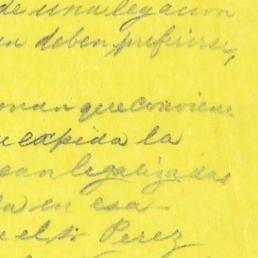 de una legación
deben preferirse,
que conviene
expida la
ean legalizadas
en esa -
el Sr Perez